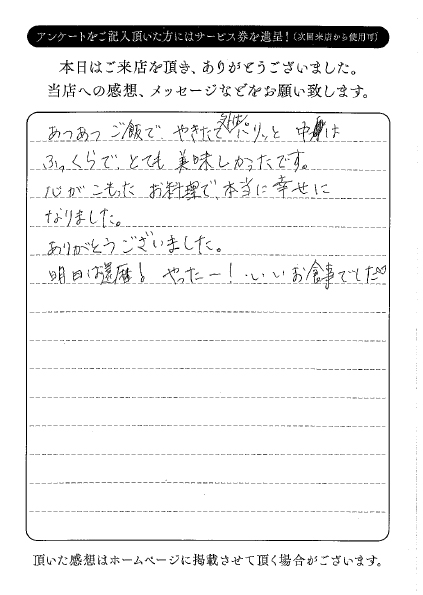 アンケートをご記入頂いた方にはサービス券を進呈！（次回来店から使用可）
本日はご来店を頂き、ありがとうございました。
当店への感想、メッセージなどをお願い致します。
あつあつ ご飯で、やきたて パリッと 中身は
ふっくらで、とても 美味しかったです。
心が こもった お料理で、本当に 幸せに
なりました。
ありがとうございました。
明日は還暦！ やったー！ いい お食事でした
頂いた感想はホームページに掲載させて頂く場合がございます。